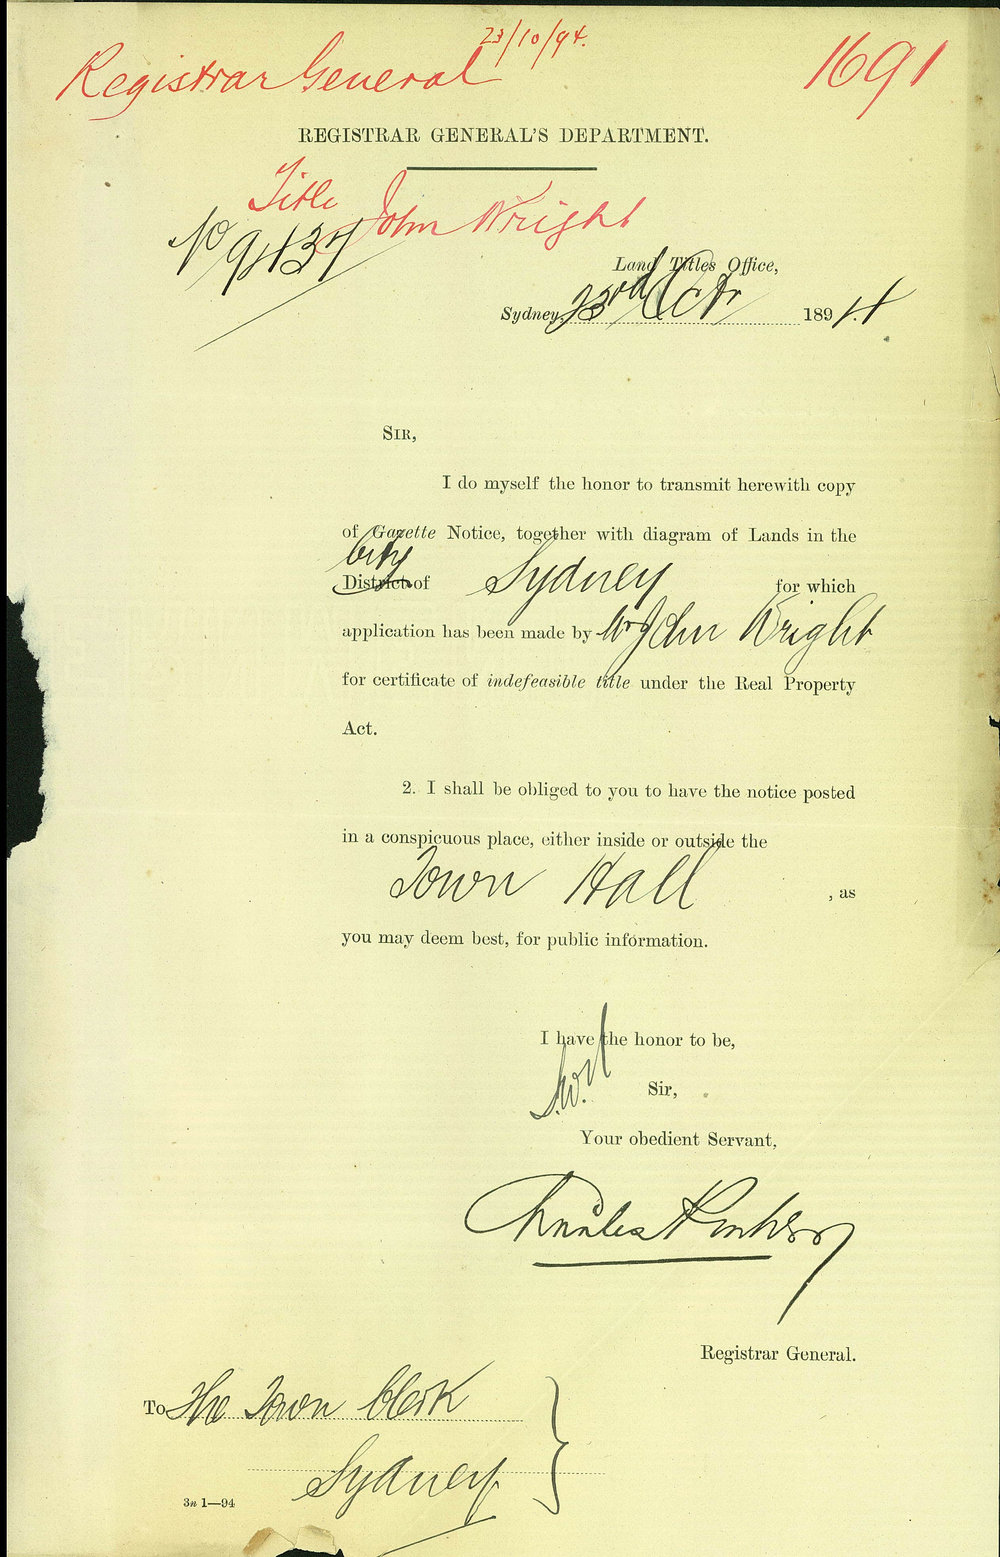 23/10/94.
Registrar General 1691
REGISTRAR GENERAL'S DEPARTMENT.
Title John Wright
No 9437
Land Titles Office,
Sydney, 23rd Octr 1894
SIR,
I do myself the honor to transmit herewith copy
of Gazette Notice, together with diagram of Lands in the
City
District of Sydney for which
application has been made by Mr John Wright
for certificate of indefeasible title under the Real Property
Act.
2. I shall be obliged to you to have the notice posted
in a conspicuous place, either inside or outside the
Town Hall , as
you may deem best, for public information.
I have the honor to be,
Sir,
Your obedient Servant,
Charles
Registrar General.
To The Town Clerk
Sydney
3n 1—94